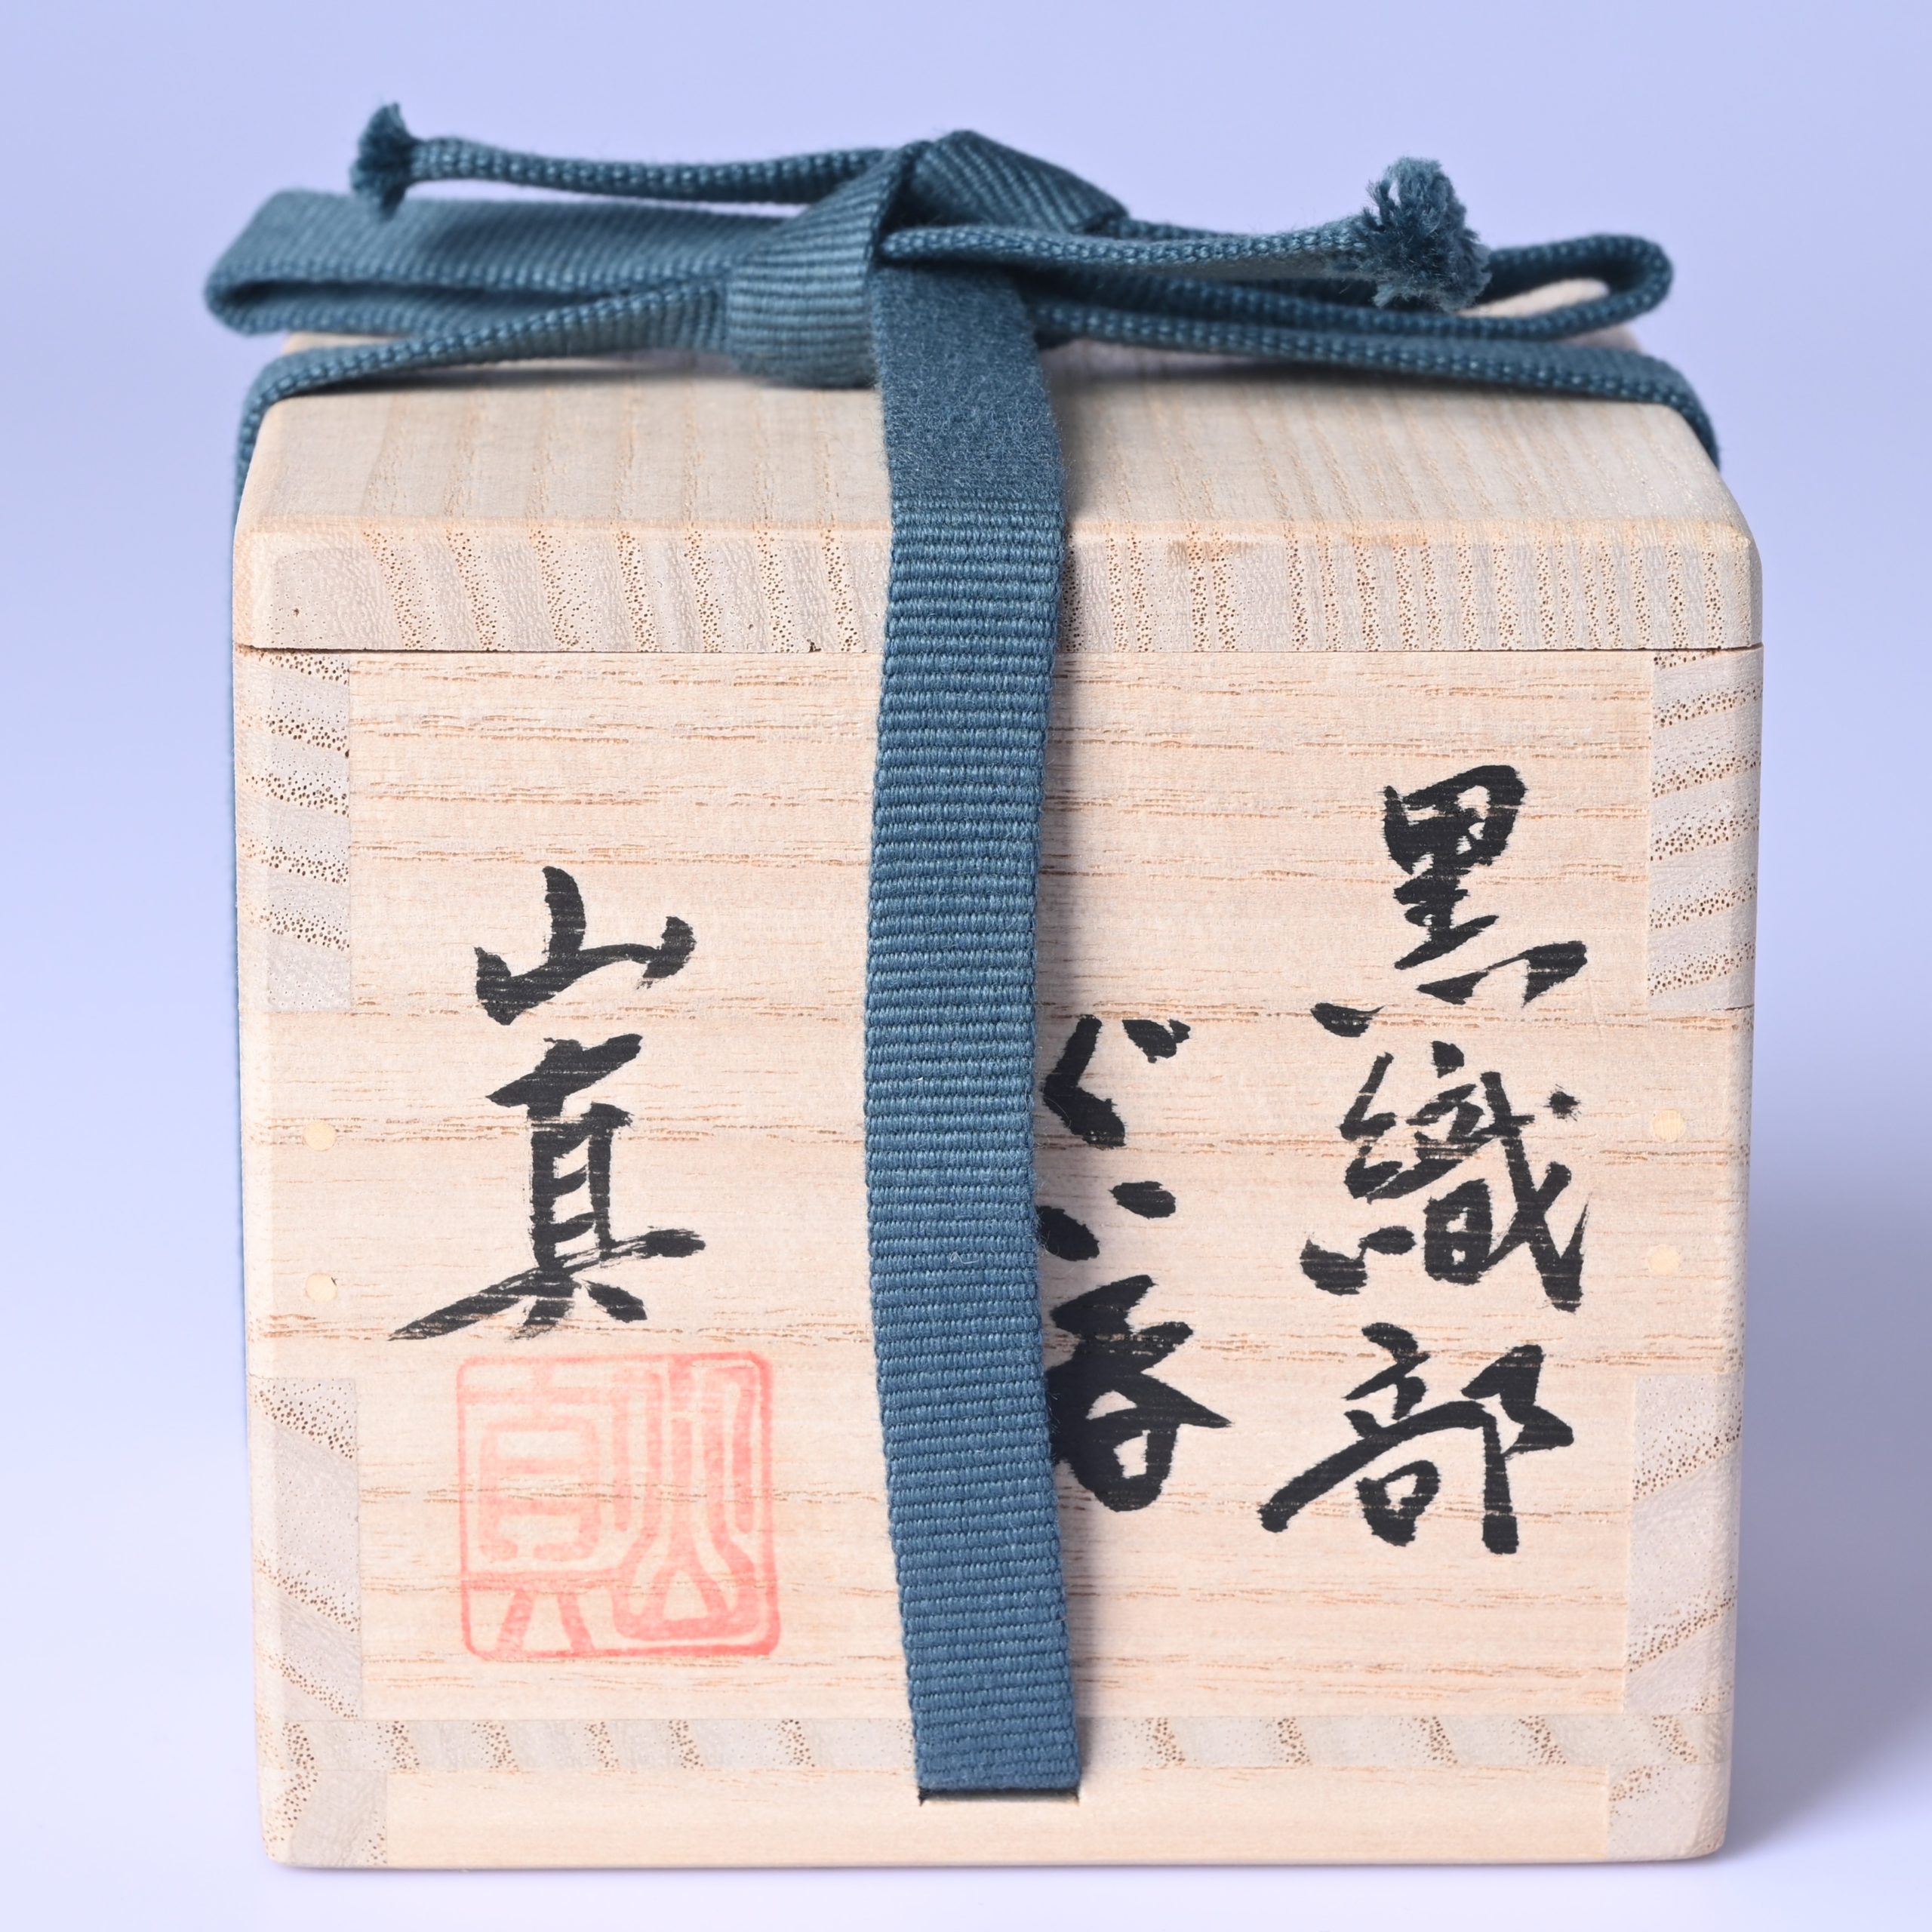 黒織部
ぐい呑
山真